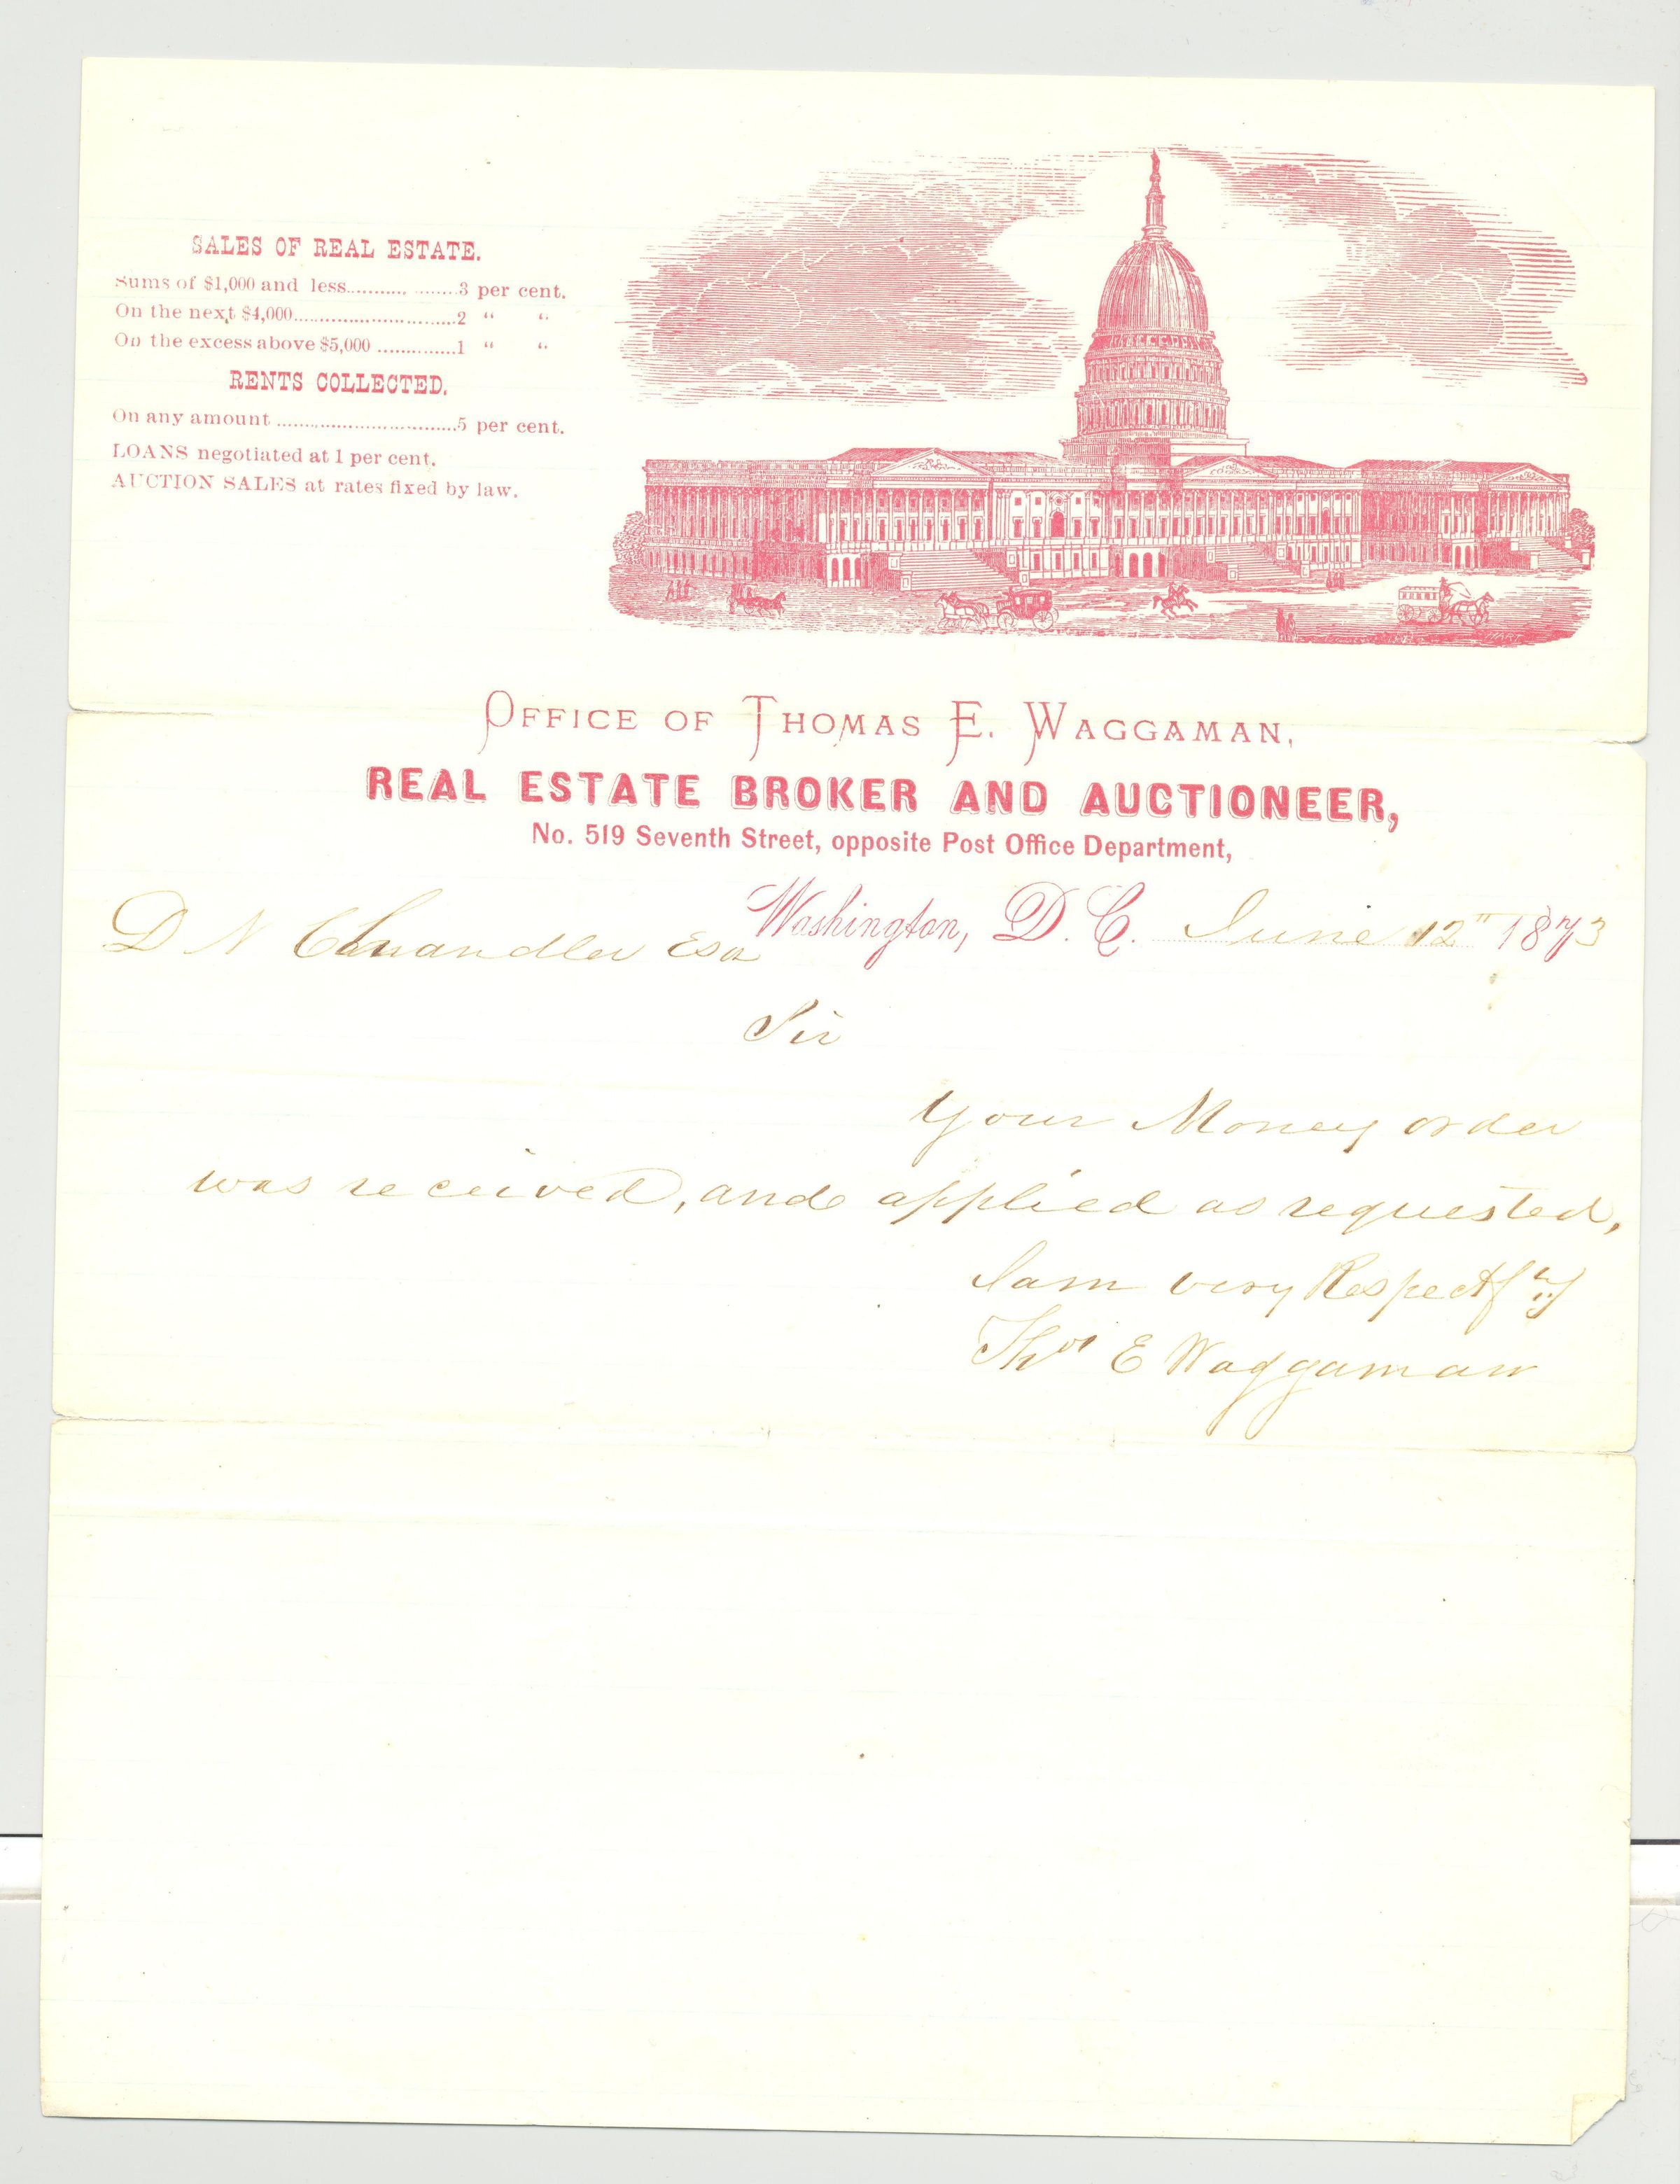 SALES OF REAL ESTATE.
Sums of $1,000 and less..................3 per cent.
On the next $4,000............................2 " "
On the excess above $5,000 ..............1 " "
RENTS COLLECTED.
On any amount ................................5 per cent.
LOANS negotiated at 1 per cent.
AUCTION SALES at rates fixed by law.
HART
OFFICE OF THOMAS E. WAGGAMAN,
REAL ESTATE BROKER AND AUCTIONEER,
No. 519 Seventh Street, opposite Post Office Department,
Washington, D. C. June 12" 1873
D N Chandler Esq
Sir
Your Money order
was received, and applied as requested,
I am very Respectfly
Thos E Waggaman